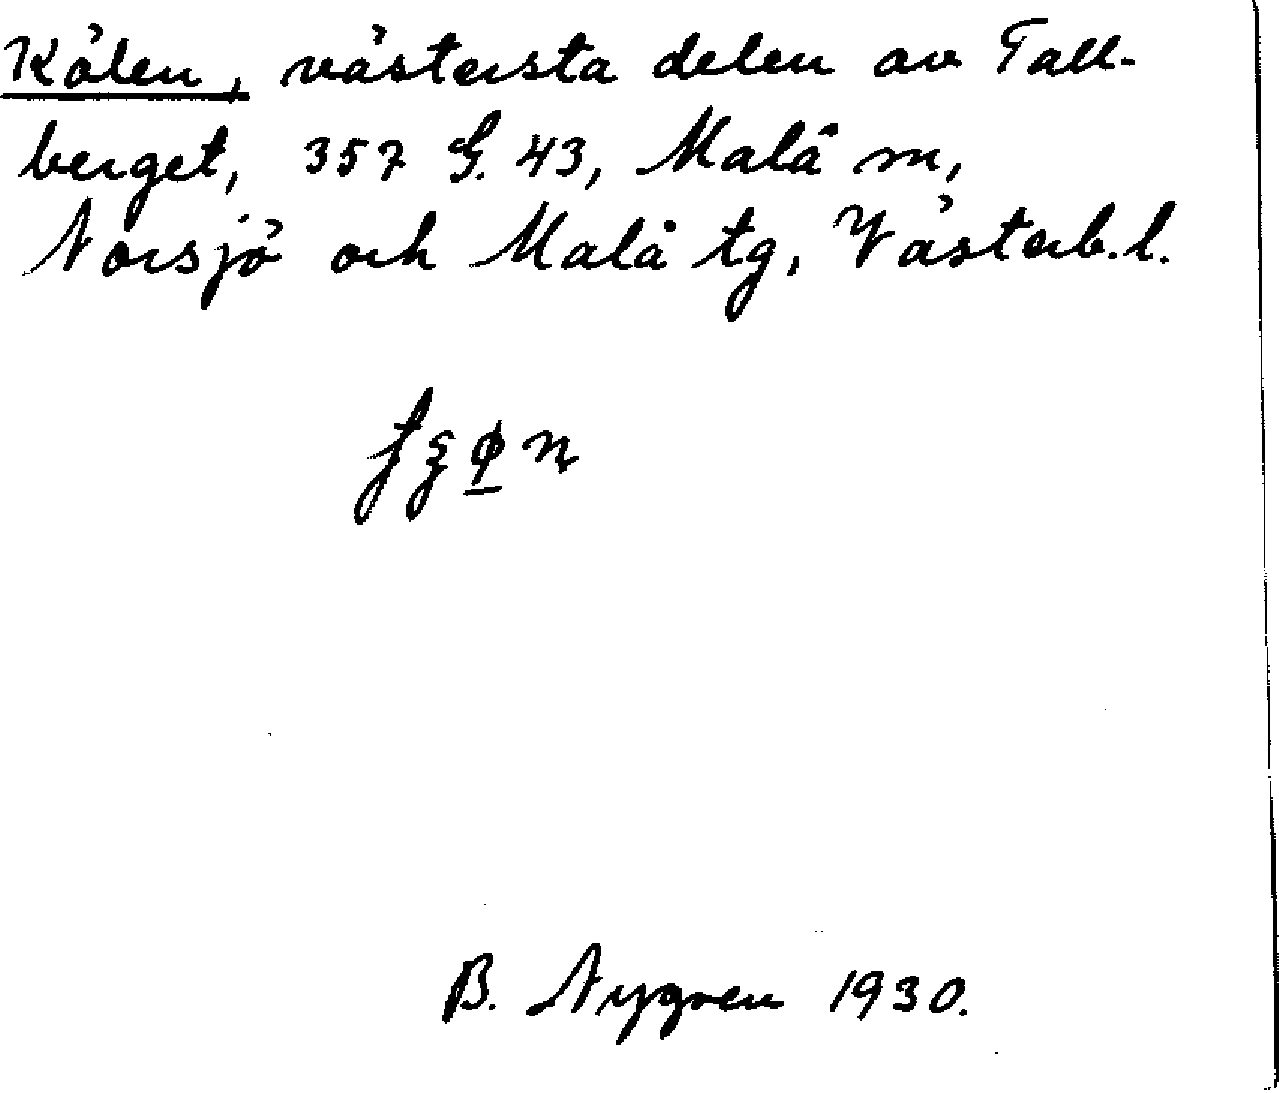 Kölen, västersta delen av Tall-
berget, 357 G. 43, Malå sn,
Norsjö och Malå tg, Västerb. l.
B. Nygren 1930.